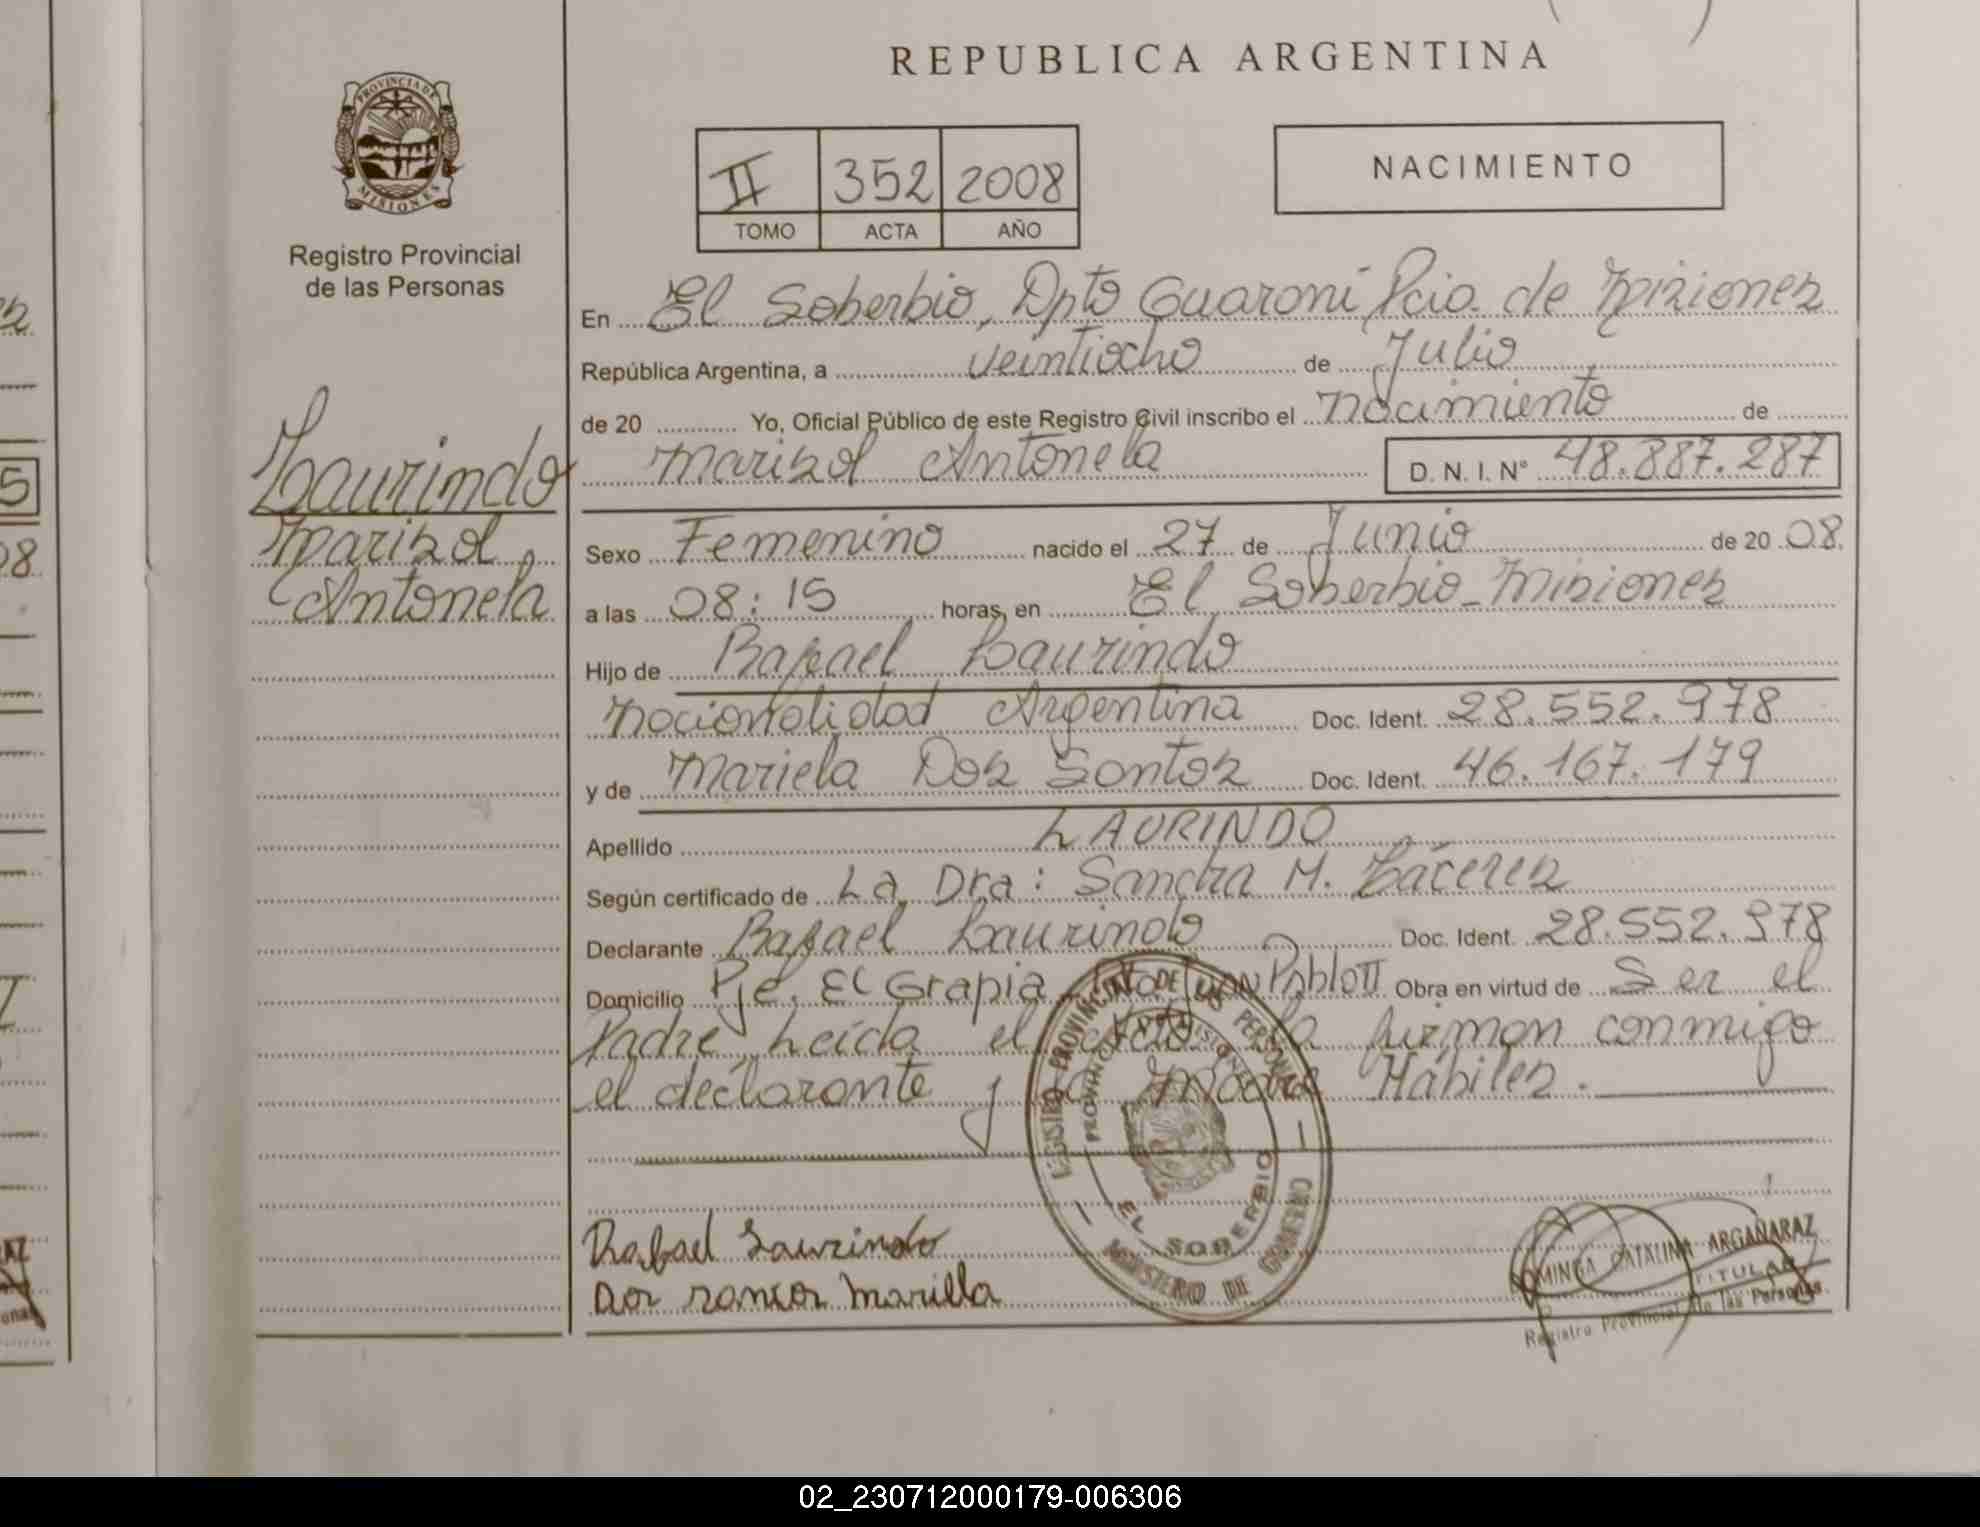 REPUBLICA ARGENTINA
PROVINCIA DE
MISIONES
Registro Provincial
de las Personas
II 352 2008
TOMO ACTA AÑO
NACIMIENTO
En El Soberbio, Dpto Guaraní Pcia. de Misiones
República Argentina, a veintiocho de Julio
de 20 Yo, Oficial Público de este Registro Civil inscribo el nacimiento de
Marisol Antonela D. N. I. Nº 48.887.287
Laurindo
Marisol
Antonela
Sexo Femenino nacido el 27 de Junio de 20 08.
a las 08:15 horas, en El Soberbio - Misiones
Hijo de Rafael Laurindo
nacionalidad Argentina Doc. Ident. 28.552.978
y de Mariela Dos Santos Doc. Ident. 46.167.179
Apellido LAURINDO
Según certificado de La Dra: Sandra M. Cáceres
Declarante Rafael Laurindo Doc. Ident. 28.552.978
Domicilio Pje. El Grapia Juan Pablo II Obra en virtud de Ser el
Padre Leída el acta la firman conmigo
el declarante y la Madre Hábiles.
REGISTRO PROVINCIAL DE LAS PERSONAS
PROVINCIA DE MISIONES
EL SOBERBIO
MINISTERIO DE GOBIERNO
Rafael Laurindo
Dos santos mariela
DOMINGA CATALINA ARGAÑARAZ
TITULAR
Registro Provincial de las Personas
02_230712000179-006306